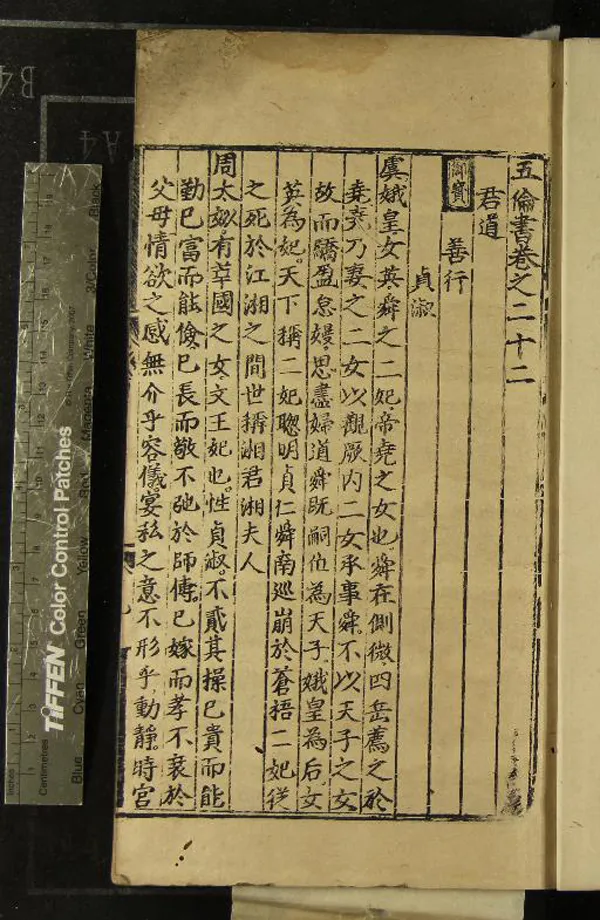 五倫書卷之二十二
君道
御寶
善行
貞淑
虞娥皇女英舜之二妃帝堯之女也舜在側微四岳薦之於
堯堯乃妻之二女以觀厥内二女承事舜不以天子之女
故而驕盈怠嫚思盡婦道舜既嗣位為天子娥皇為后女
英為妃天下稱二妃聰明貞仁舜南廵崩於蒼梧二妃従
之死於江湘之間世稱湘君湘夫人
周太姒有莘國之女文王妃也性貞淑不貳其操已貴而能
勤已富而能儉已長而敬不弛於師傅已嫁而孝不衰於
父母情欲之感無介乎容儀宴私之意不形乎動靜時宮
TIFFEN Color Control Patches
Blue
Cyan
Green
Yellow
Red
Magenta
White
3/Color
Black
Centimetres
Inches
B4
A4